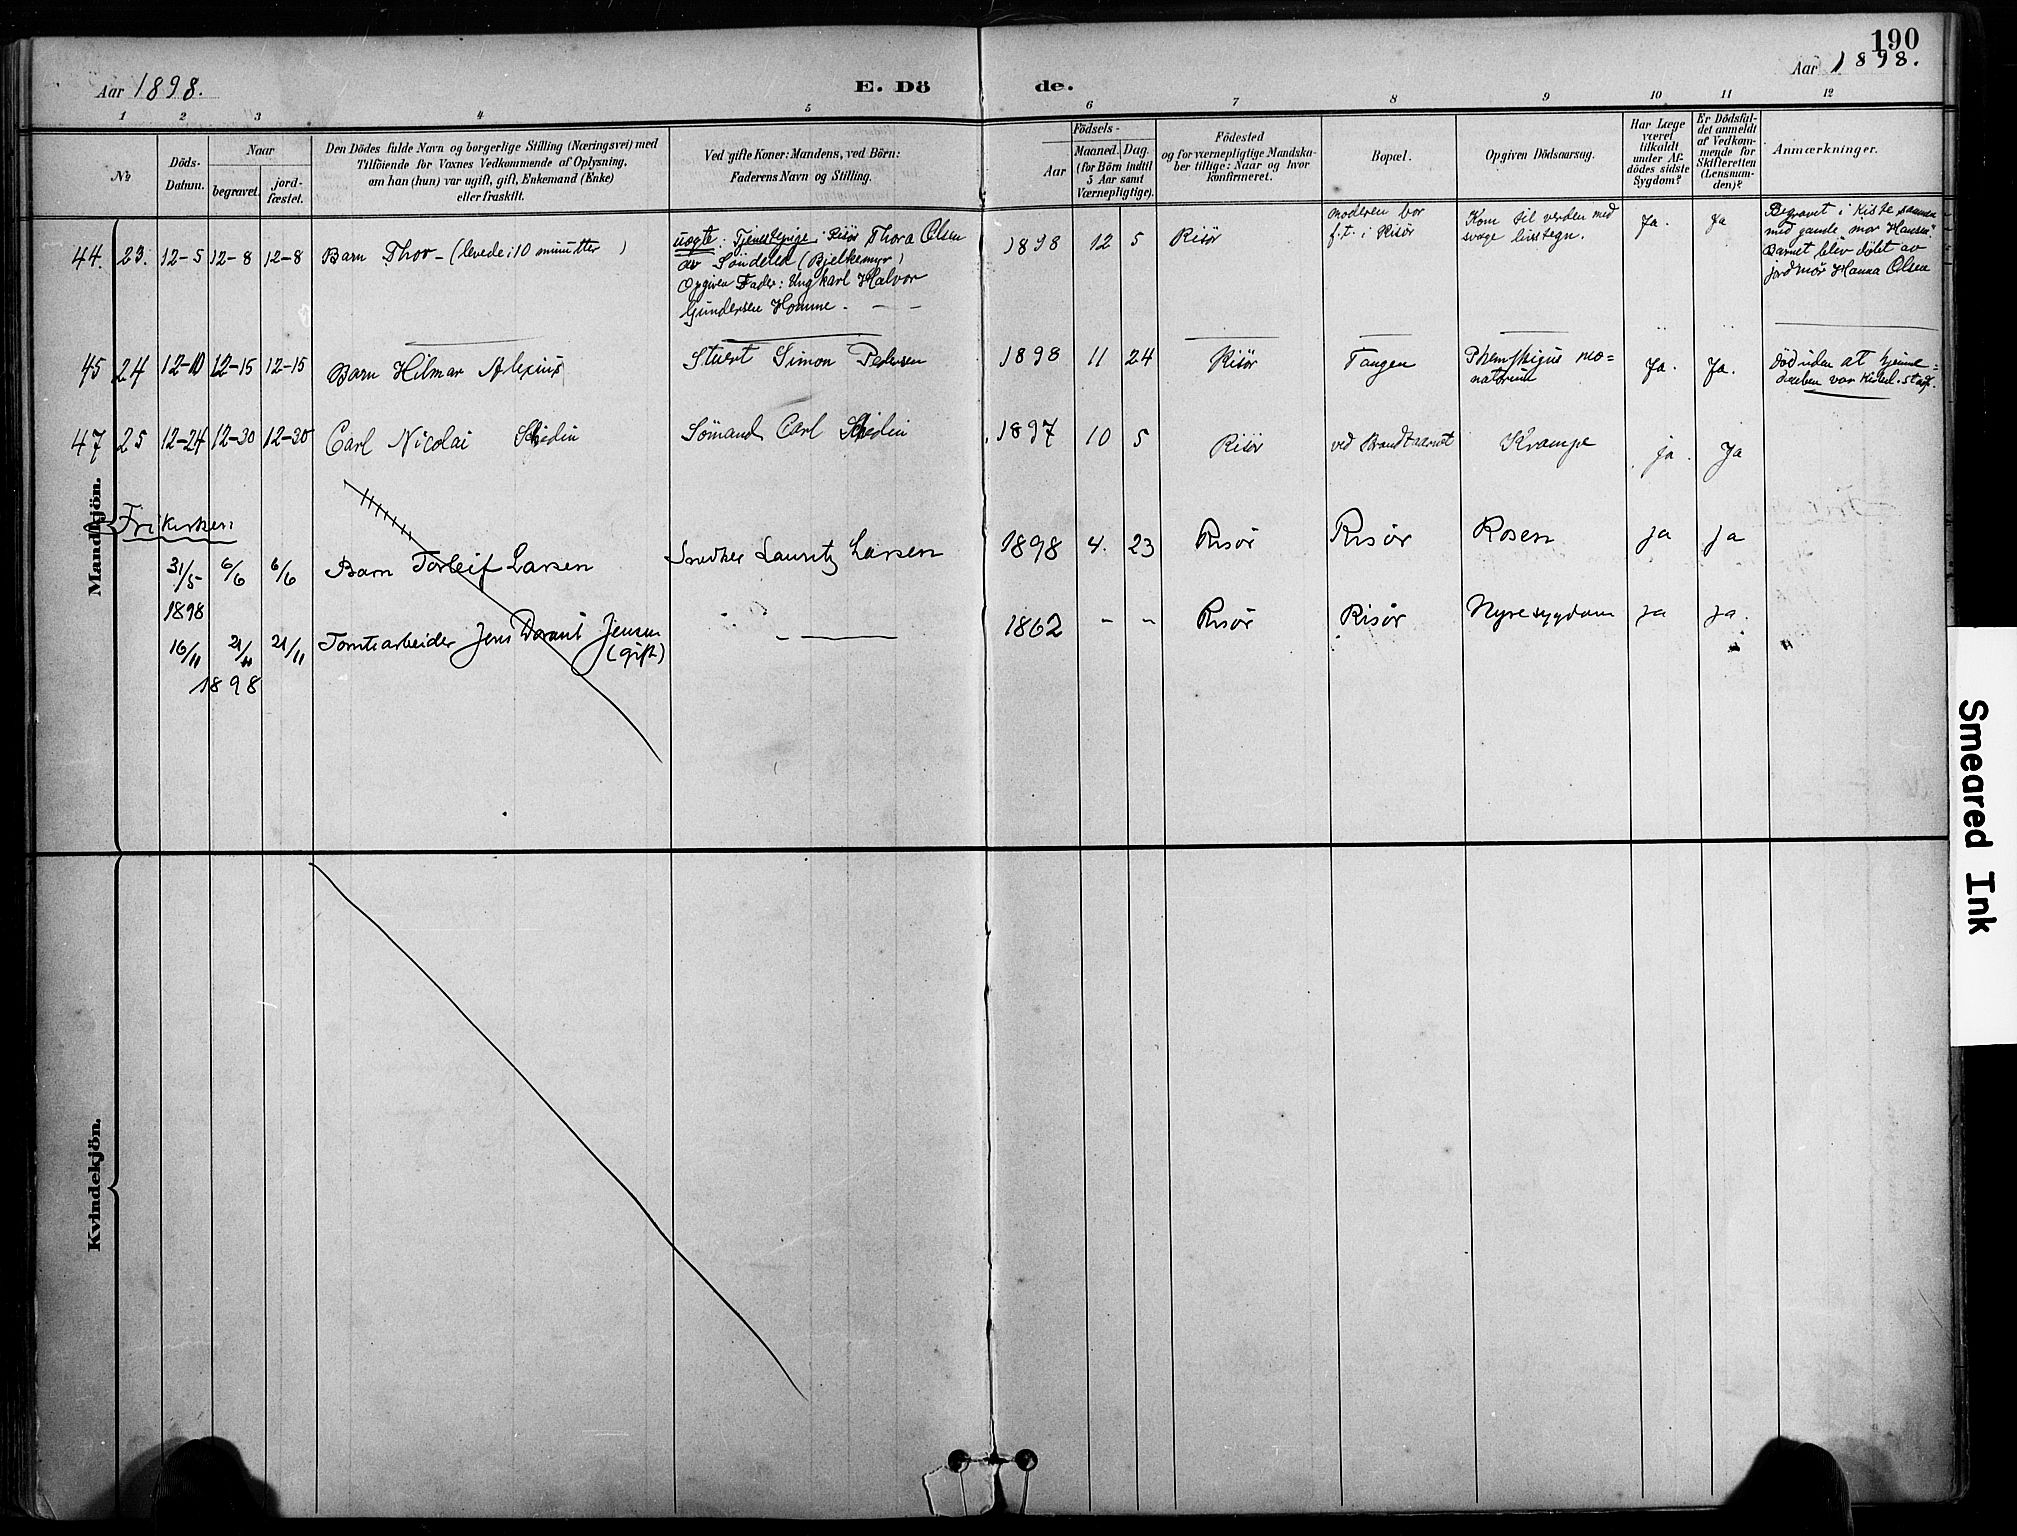 190
Aar 1898.
E. Döde.
Aar 1898.
1 2 3 4 5 6 7 8 9 10 11 12
No
Döds-
Datum.
Naar
begravet.
jord-
fæstet.
Den Dödes fulde Navn og borgerlige Stilling (Næringsvei) med
Tilföiende for Voxnes Vedkommende af Oplysning,
om han (hun) var ugift, gift, Enkemand (Enke)
eller fraskilt.
Ved gifte Koner: Mandens, ved Börn:
Faderens Navn og Stilling.
Födsels-
Aar
Maaned.
Dag
(for Börn indtil
5 Aar samt
Værnepligtige).
Födested
og for værnepligtige Mandska-
ber tillige: Naar og hvor
konfirmeret.
Bopæl.
Opgiven Dödsaarsag.
Har Læge
været
tilkaldt
under Af-
dödes sidste
Sygdom?
Er Dödsfal-
det anmeldt
af Vedkom-
mende for
Skifteretten
(Lensman-
den)?
Anmærkninger.
Mandkjön.
44. 23. 12-5 12-8 12-8 Barn Thor - (levede i 10 minutter)
uægte: Tjenestepige i Risør Thora Olsen
av Söndeled (Bjelkemyr)
Opgiven Fader: Ungkarl Halvor
Gundersen Homme. - -
1898 12 5 Risør
moderen bor
f.t. i Risør
Kom til verden med
svage livstegn.
Ja. Ja
Begravet i Kiste sammen
med
Barnet blev døbt av
jordmor Hanna Olsen
45 24 12-10 12-15 12-15 Barn Hilmar Alexius
Stuert Simon Pedersen
1898 11 24 Risør Tangen
Ja. Ja.
Död uden at hjemme-
daaben var
47 25 12-24 12-30 12-30 Carl Nicolai Schedin
Sömand Carl Schedin
1897 10 5 Risør ved Brandtaarnet Krampe ja. Ja
Frikirken:
31/5 6/6 6/6 Barn Torleif Larsen Snedker Lauritz Larsen 1898 4. 23 Risør Risør Rosen ja ja
1898
16/11 21/11 21/11 Tomtearbeider Jens Jensen
(gift)
1862 - - Risør Risør Nyresygdom ja ja.
1898
Kvindekjön.
Smeared Ink